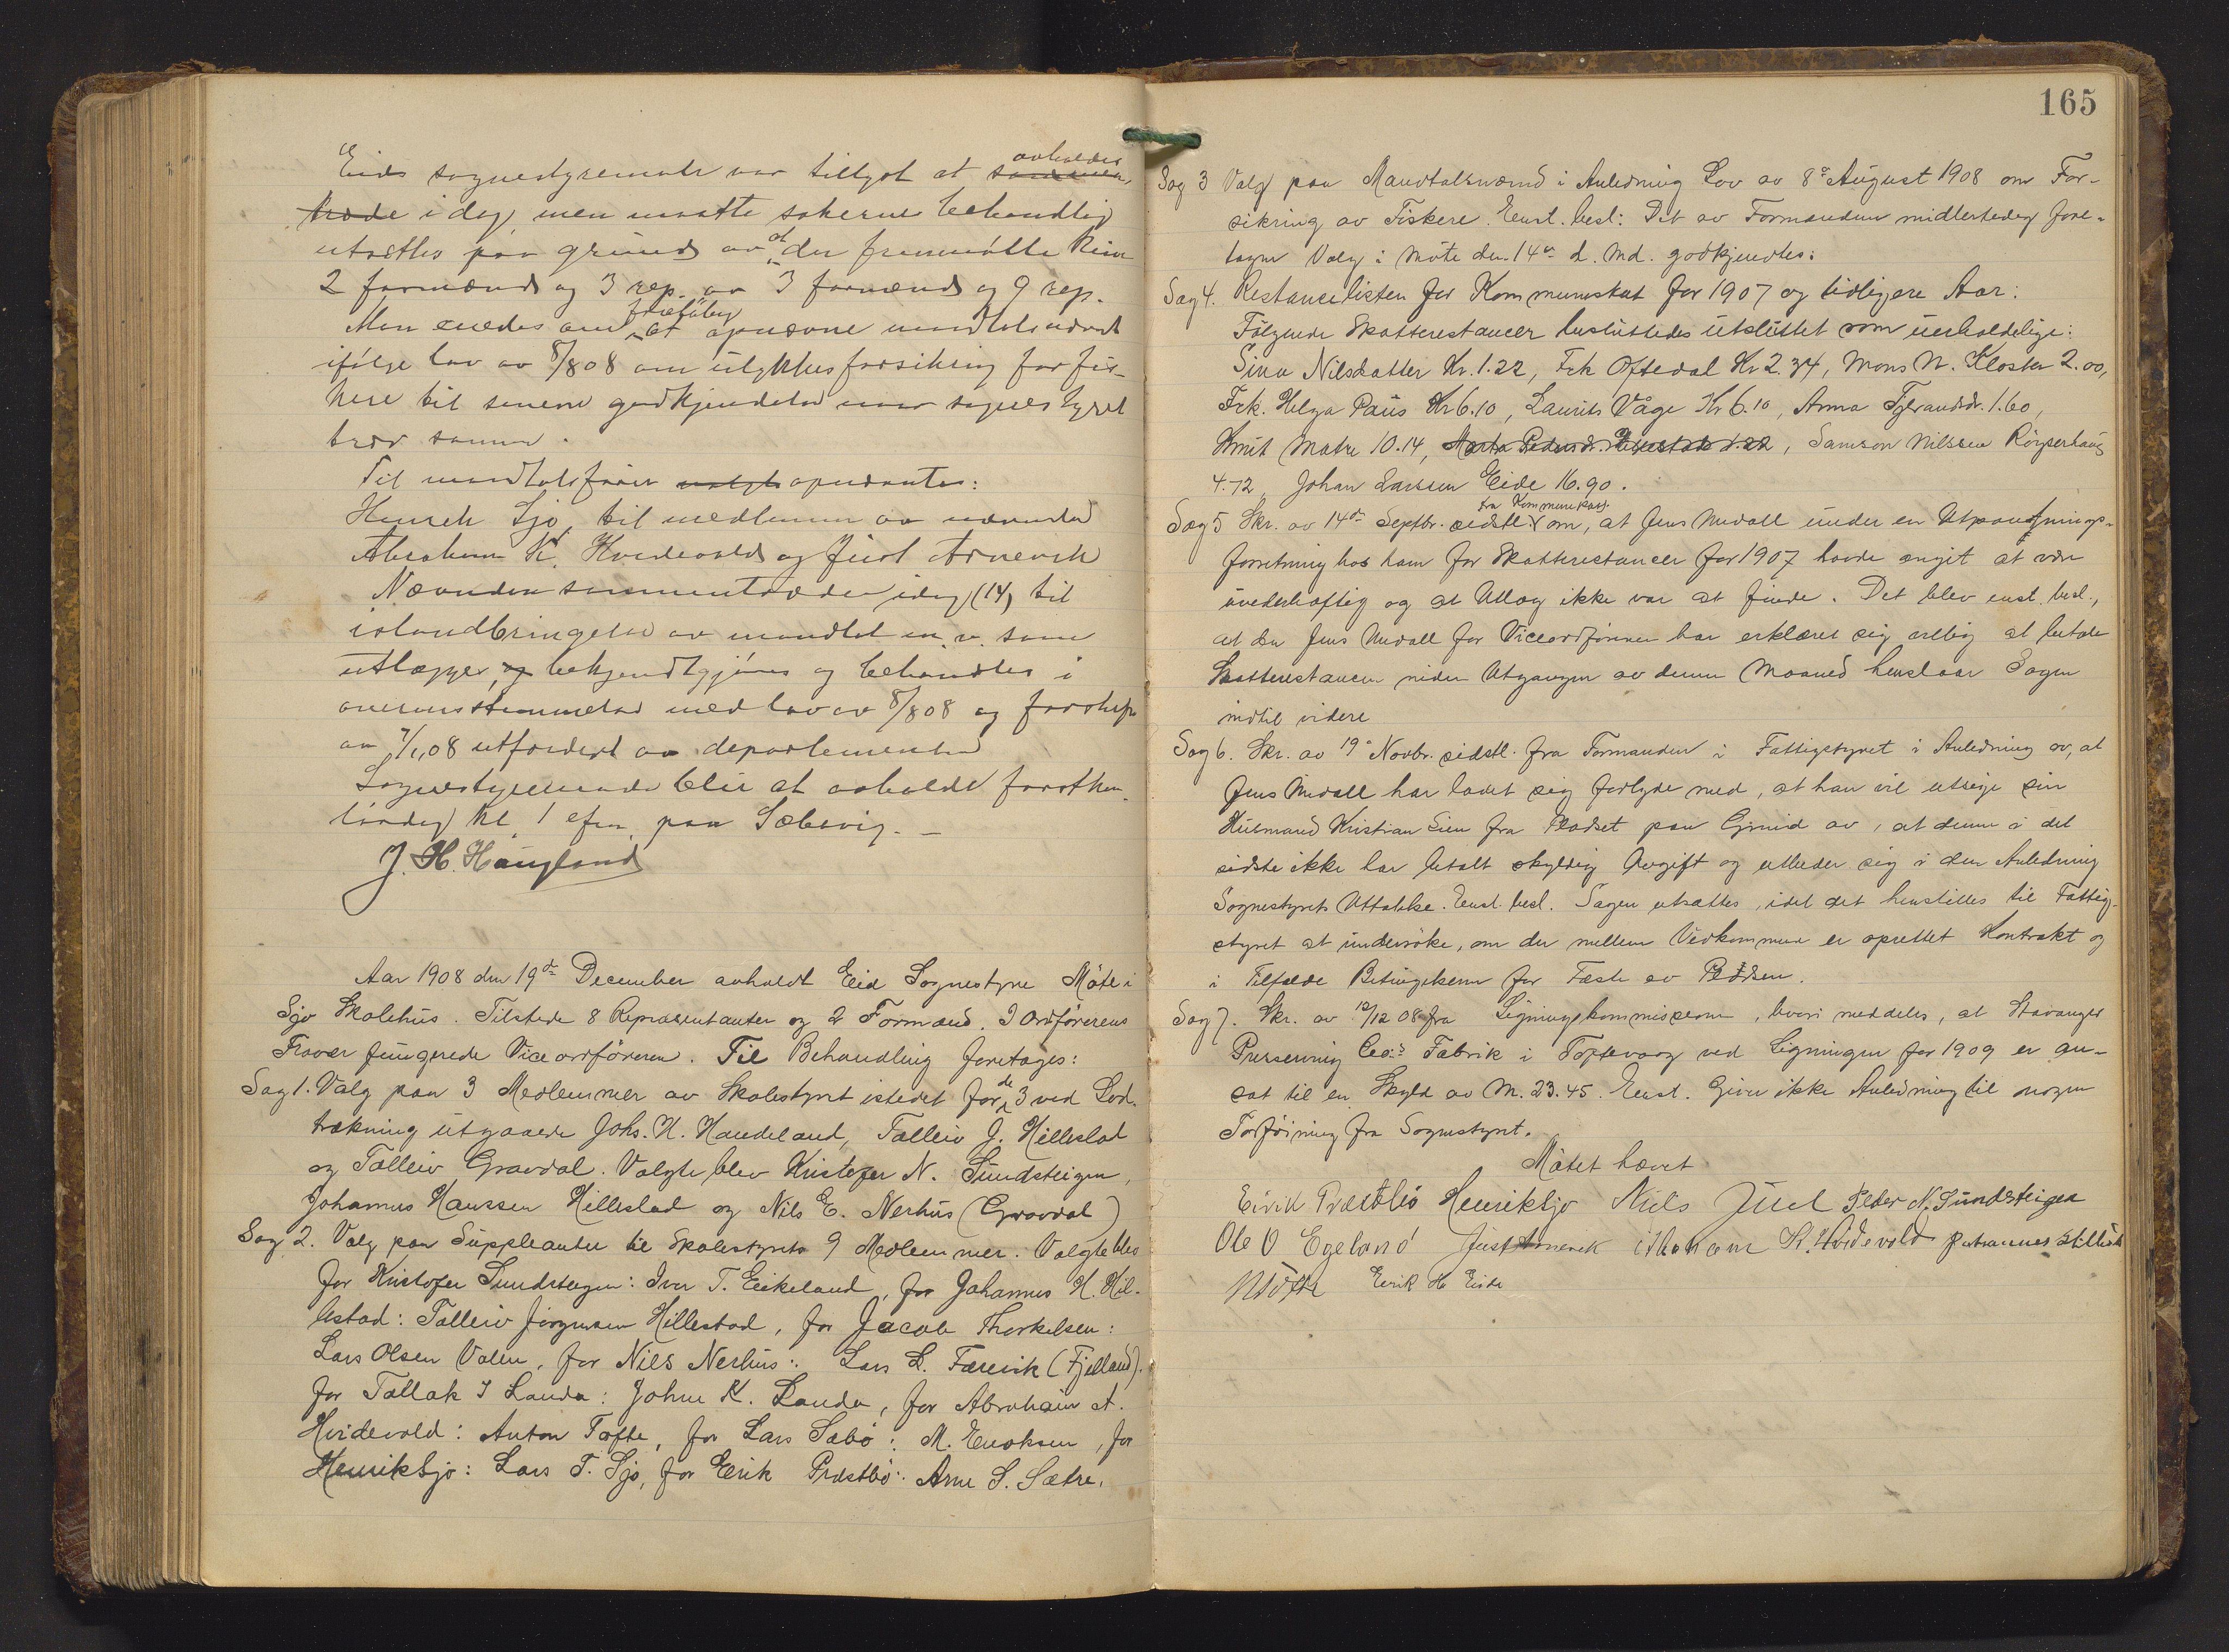 Eids sognestyremøte var tillyst at avholdes
i dag, men maatte sakernes behandling
utsættes paa grund av at der fremmøtte kun
2 formænd og 3 rep. av 3 formænd og 9 rep.
Man enedes om foreløbig at opnævne mandtalsnævnd
ifølge lov av 8/8 08 om ulykkesforsikring for fis-
kere til senere godkjendelse naar sognestyret
træder sammen.
Til mandtalsfører opnævntes:
Henrik Sjo, til medlemmer av nævnden
Abraham K. Hvidevold og Just Arnevik
Nævnden sammentræder idag (14) til
istandbringelse av mandtal m. v. som
utlægges, bekjendtgjøres og behandles i
overensstemmelse med lov av 8/8 08 og forskr.
av 7/1, 08 utfærdiget av departementet
Sognestyremøde blir at avholde førstkom.
lørdag kl. 1 efm. paa Sæbøvig.
J. H. Haugland
Aar 1908 den 19de December avholdt Eid Sognestyre Møte i
Sjo Skolehus. Tilstede 8 Repræsentanter og 2 Formænd. I Ordførerens
Fravær fungerede Viceordføreren. Til Behandling foretages:
Sag 1. Valg paa 3 Medlemmer av Skolestyret istedet for de 3 ved Lod-
trækning utgaaede Johs. H. Handeland, Talleiv J. Hillestad
og Talleiv Gravdal. Valgte blev Kristofer N. Sundsteigen,
Johannes Hanssen Hillestad og Nils E. Nerhus (Gravdal)
Sag 2. Valg paa Suppleanter til Skolestyrets 9 Medlemmer. Valgte blev
for Kristofer Sundsteigen: Iver T. Eikeland, for Johannes H. Hil-
lestad: Talleiv Jørgensen Hillestad, for Jacob Thorkelsen:
Lars Olsen Valen, for Nils Nerhus: Lars L. Færevik (Fjelland).
for Tallak I Landa: Johne K. Landa, for Abraham A.
Hvidevold: Anton Tofte, for Lars Sæbø: M. Enoksen, for
Henrik Sjo: Lars T. Sjo, for Eirik Præstbø: Arne S. Sætre.
165
Sag 3 Valg paa Mandtalsnævnd i Anledning Lov av 8de August 1908 om For-
sikring av Fiskere. Enst. besl: Det av Formanden midlertidig fore-
tagne Valg i Møte den 14de d. Md. godkjendtes:
Sag 4. Restancelisten for Kommuneskat for 1907 og tidligere Aar:
Følgende Skatterestancer besluttedes utsluttet som uerholdelige:
Sina Nilsdatter Kr. 1.22, Frk Oftedal Kr 2.34, Mons N. Kloster 2.00,
Frk. Helga Paus Kr 6.10, Laurits Våge Kr 6.10, Anna Tjerandsdr. 1.60,
Knut Matre 10.14, Marta Pedersdr. 1.22, Samson Nilssen Røyserhaug
4.72, Johan Larssen Eide 16.90.
Sag 5 Skr. av 14de Septbr. sidstl. fra Kommunekass. om, at Jens Medall under en Utpantnings-
forretning hos ham for Skatterestancer for 1907 havde angit at være
uvederhæftig og at Utlæg ikke var at finde. Det blev enst. besl.,
at da Jens Medall for Viceordføreren har erklæret sig villig at betale
Skatterestancen inden Utgangen av denne Maaned henstaar Sagen
indtil videre
Sag 6. Skr. av 19de Novbr. sidstl. fra Formanden i Fattigstyret i Anledning av, at
Jens Medall har ladet sig forlyde med, at han vil utsige sin
Husmand Kristian Lien fra Pladset paa Grund av, at denne i det
sidste ikke har betalt skyldig Avgift og utbeder sig i den Anledning
Sognestyrets Uttalelse. Enst. besl. Sagen utsættes, idet det henstilles til Fattig-
styret at undersøke, om der mellem Vedkommende er oprettet Kontrakt og
i Tilfælde Betingelserne for Fæste av Pladsen.
Sag 7. Skr. av 12/12 08 fra Ligningskommissionen, hvori meddeles, at Stavanger
Preserving Co.s Fabrik i Toftevaag ved Ligningen for 1909 er an-
sat til en Skyld av M. 23.45. Enst. Giver ikke Anledning til nogen
Forføining fra Sognestyret.
Møtet hævet
Eirik Præstbø Henrik Sjo Niels Juel Peder N. Sundsteigen
Ole O Egeland Just Arnevik Abraham K. Hvidevold Johannes Hillestad
Eerik H Eide